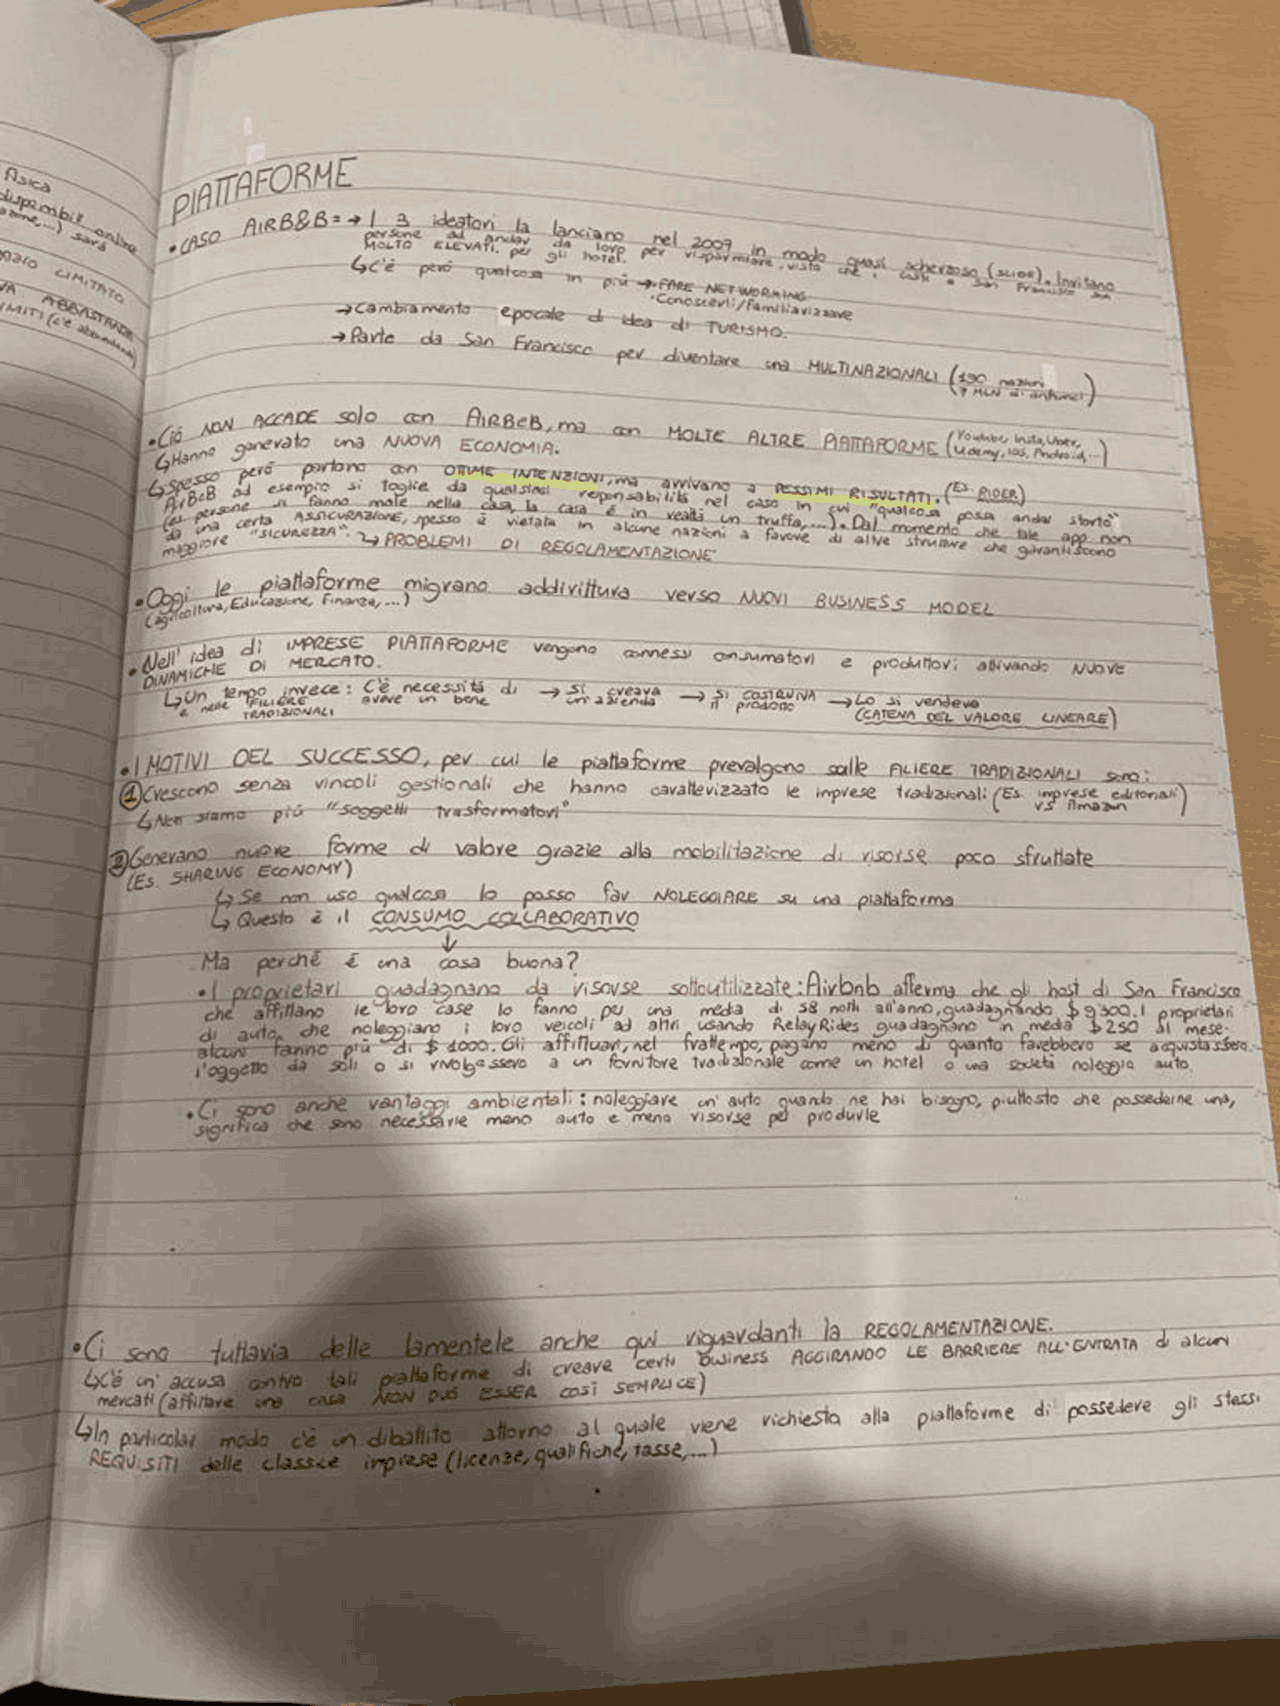 fisica
disponibili online
sarà
LIMITATO
ABBASTANZA
LIMITI (c'è abbondanza)
PIATTAFORME
• CASO AIRB&B = → I 3 ideatori la lanciano nel 2009 in modo quasi scherzoso (SLIDE). Invitano
persone ad andar da loro per risparmiare, visto che i costi a San Francisco son
MOLTO ELEVATI. per gli hotel.
↳ C'è però qualcosa in più → FARE NETWORKING
• Conoscerli/familiarizzare
→ Cambiamento epocale di idea di TURISMO.
→ Parte da San Francisco per diventare una MULTINAZIONALI (190 nazioni
7 MLN di annunci)
• Ciò NON ACCADE solo con AIRBeB, ma con MOLTE ALTRE PIATTAFORME (Youtube, Insta, Uber,
Udemy, ios, Android,...)
↳ Hanno generato una NUOVA ECONOMIA.
↳ Spesso però partono con OTTIME INTENZIONI, ma arrivano a PESSIMI RISULTATI. (Es. RIDER)
AirBeB ad esempio si toglie da qualsiasi reponsabilità nel caso in cui "qualcosa possa andar storto"
(es persone si fanno male nella casa, la casa è in realtà un truffa,...). Dal momento che tale app non
da una certa ASSICURAZIONE, spesso è vietata in alcune nazioni a favore di altre strutture che garantiscono
maggiore "SICUREZZA". ↳ PROBLEMI DI REGOLAMENTAZIONE
• Oggi le piattaforme migrano addirittura verso NUOVI BUSINESS MODEL
(agricoltura, Educazione, Finanza,...)
• Nell' idea di IMPRESE PIATTAFORME vengono connessi consumatori e produttori attivando NUOVE
DINAMICHE DI MERCATO.
↳ Un tempo invece: C'è necessità di → si creava → si COSTRUIVA → Lo si vendeva
e nelle FILIERE avere un bene un'azienda il prodotto (CATENA DEL VALORE LINEARE)
TRADIZIONALI
• I MOTIVI DEL SUCCESSO, per cui le piattaforme prevalgono sulle FILIERE TRADIZIONALI sono:
① Crescono senza vincoli gestionali che hanno caratterizzato le imprese tradizionali (Es. imprese editoriali
vs Amazon)
↳ Non siamo più "soggetti trasformatori"
② Generano nuove forme di valore grazie alla mobilitazione di risorse poco sfruttate
(Es. SHARING ECONOMY)
↳ Se non uso qualcosa lo posso far NOLEGGIARE su una piattaforma
↳ Questo è il CONSUMO COLLABORATIVO
↓
Ma perchè è una cosa buona?
• I proprietari guadagnano da risorse sottoutilizzate: Airbnb afferma che gli host di San Francisco
che affittano le loro case lo fanno per una media di 58 notti all'anno, guadagnando $ 9300. I proprietari
di auto che noleggiano i loro veicoli ad altri usando RelayRides guadagnano in media $ 250 al mese.
alcuni fanno più di $ 1000. Gli affittuari, nel frattempo, pagano meno di quanto farebbero se acquistassero
l'oggetto da soli o si rivolgessero a un fornitore tradizionale come un hotel o una società noleggio auto.
• Ci sono anche vantaggi ambientali: noleggiare un' auto quando ne hai bisogno, piuttosto che possederne una,
significa che sono necessarie meno auto e meno risorse per produrle
• Ci sono tuttavia delle lamentele anche qui riguardanti la REGOLAMENTAZIONE.
↳ C'è un' accusa contro tali piattaforme di creare certi business AGGIRANDO LE BARRIERE ALL'ENTRATA di alcuni
mercati (affittare una casa NON PUÒ ESSER COSÌ SEMPLICE)
↳ In particolar modo c'è un dibattito attorno al quale viene richiesta alla piattaforme di possedere gli stessi
REQUISITI delle classice imprese (licenze, qualifiche, tasse,...)